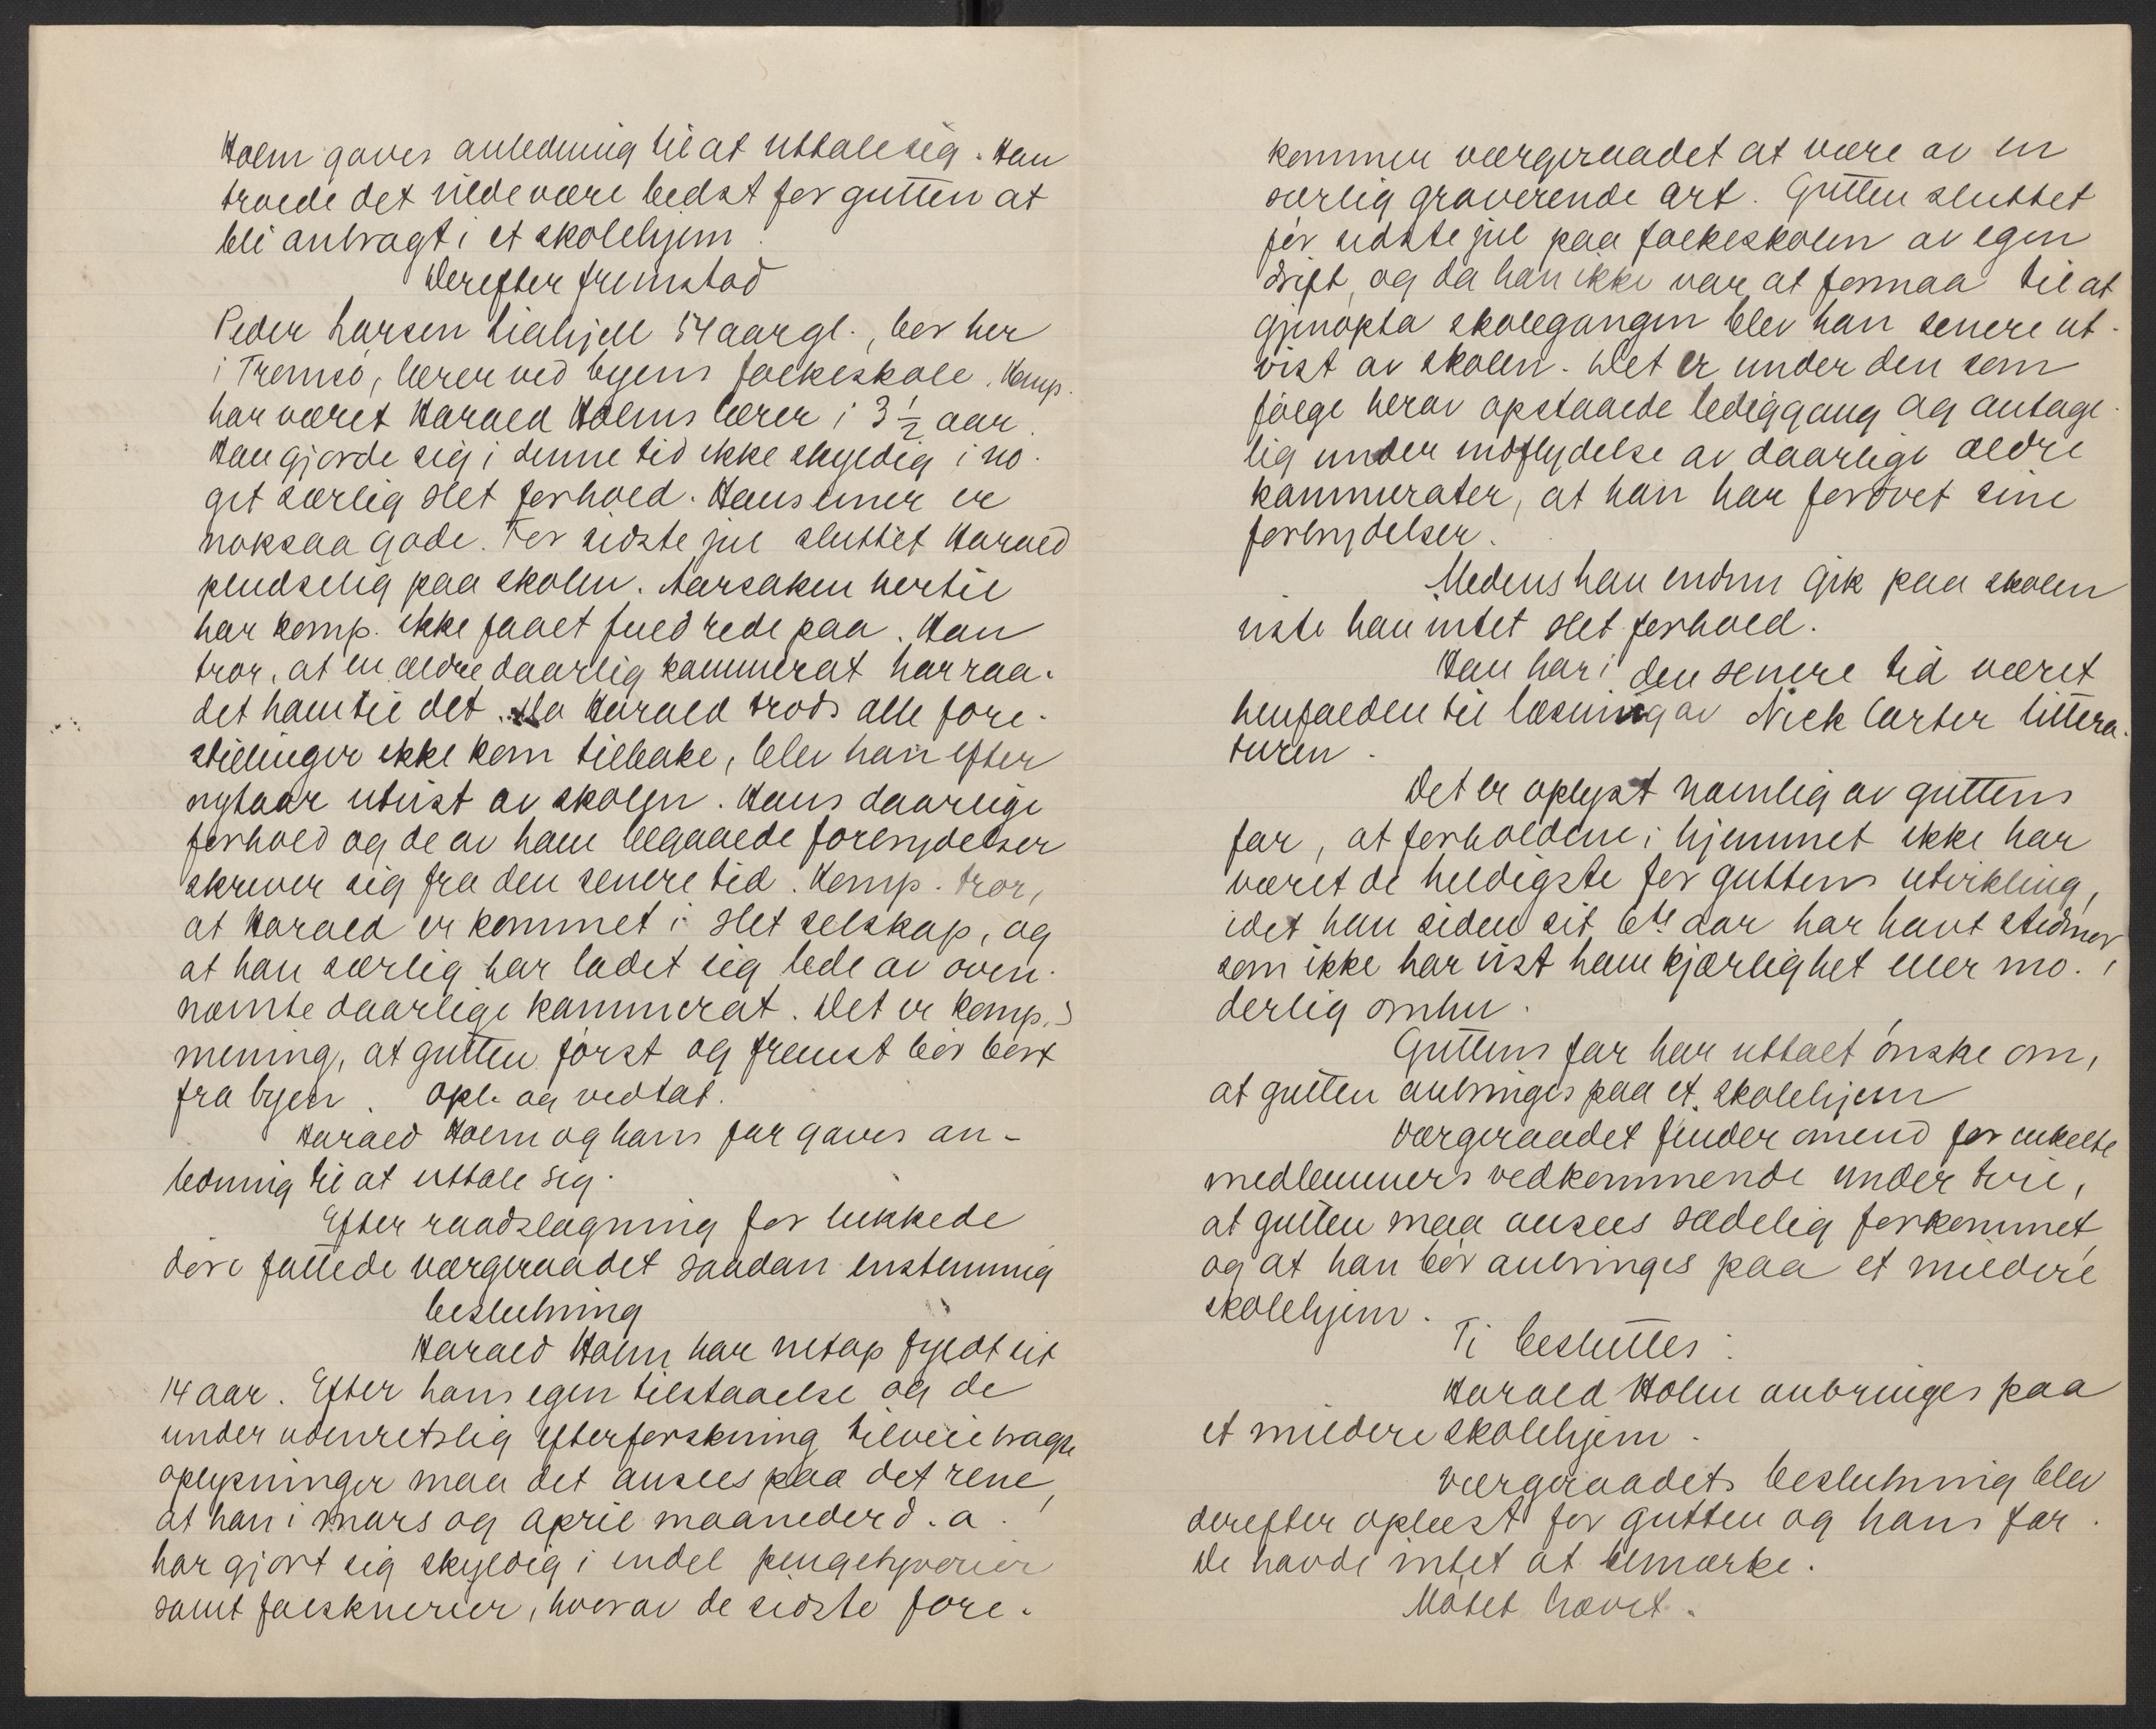 Holm gaves anledning til at uttale sig. Han
troede det vilde være bedst for gutten at
bli anbragt i et skolehjem.
Derefter fremstod
Peder Larsen Liahjell 54 aar gl., bor her
i Tromsø, lærer ved byens folkeskole. Komp.
har været Harald Holms lærer i 3 1/2 aar.
Han gjorde sig i denne tid ikke skyldig i no-
get særlig slet forhold. Hans evner er
noksaa gode. Før sidste jul sluttet Harald
pludselig paa skolen. Aarsaken hertil
har komp. ikke faaet fuld rede paa. Han
tror, at en ældre daarlig kammerat har raa-
det ham til det. Da Harald trods alle fore-
stillinger ikke kom tilbake, blev han efter
nytaar utvist av skolen. Hans daarlige
forhold og de av ham begaaede forbrydelser
skriver sig fra den senere tid. Komp. tror,
at Harald er kommet i slet selskap, og
at han særlig har ladet sig lede av oven-
nævnte daarlige kammerat. Det er komp.s
mening, at gutten først og fremst bør bort
fra byen. Opl. og vedtat.
Harald Holm og hans far gaves an-
ledning til at uttale sig.
Efter raadslagning for lukkede
døre fattede værgeraadet saadan enstemmig
beslutning
Harald Holm har netop fyldt sit
14 aar. Efter hans egen tilstaaelse og de
under udenretslig efterforskning tilveiebragte
oplysninger maa det ansees paa det rene,
at han i mars og april maaneder d. a.
har gjort sig skyldig i endel pengetyverier
samt falsknerier, hvorav de sidste fore-
kommer værgeraadet at være av en
særlig graverende art. Gutten sluttet
før sidste jul paa folkeskolen av egen
drift, og da han ikke var at formaa til at
gjenopta skolegangen blev han senere ut-
vist av skolen. Det er under den som
følge herav opstaaede lediggang og antage-
lig under indflydelse av daarlige ældre
kammerater, at han har forøvet sine
forbrydelser.
Medens han endnu gik paa skolen
viste han intet slet forhold.
Han har i den senere tid været
henfalden til læsning av Nick Carter littera-
turen.
Det er oplyst navnlig av guttens
far, at forholdene i hjemmet ikke har
været de heldigste for guttens utvikling,
idet han siden sit 6te aar har havt stedmor,
som ikke har vist ham kjærlighet eller mo-
derlig omhu.
Guttens far har uttalt ønske om,
at gutten anbringes paa et skolehjem
Værgeraadet finder omend for enkelte
medlemmers vedkommende under tvil,
at gutten maa ansees sædelig forkommet
og at han bør anbringes paa et mildere
skolehjem.
Ti besluttes:
Harald Holm anbringes paa
et mildere skolehjem.
Værgeraadets beslutning blev
derefter oplæst for gutten og hans far.
De havde intet at bemærke.
Møtet hævet.